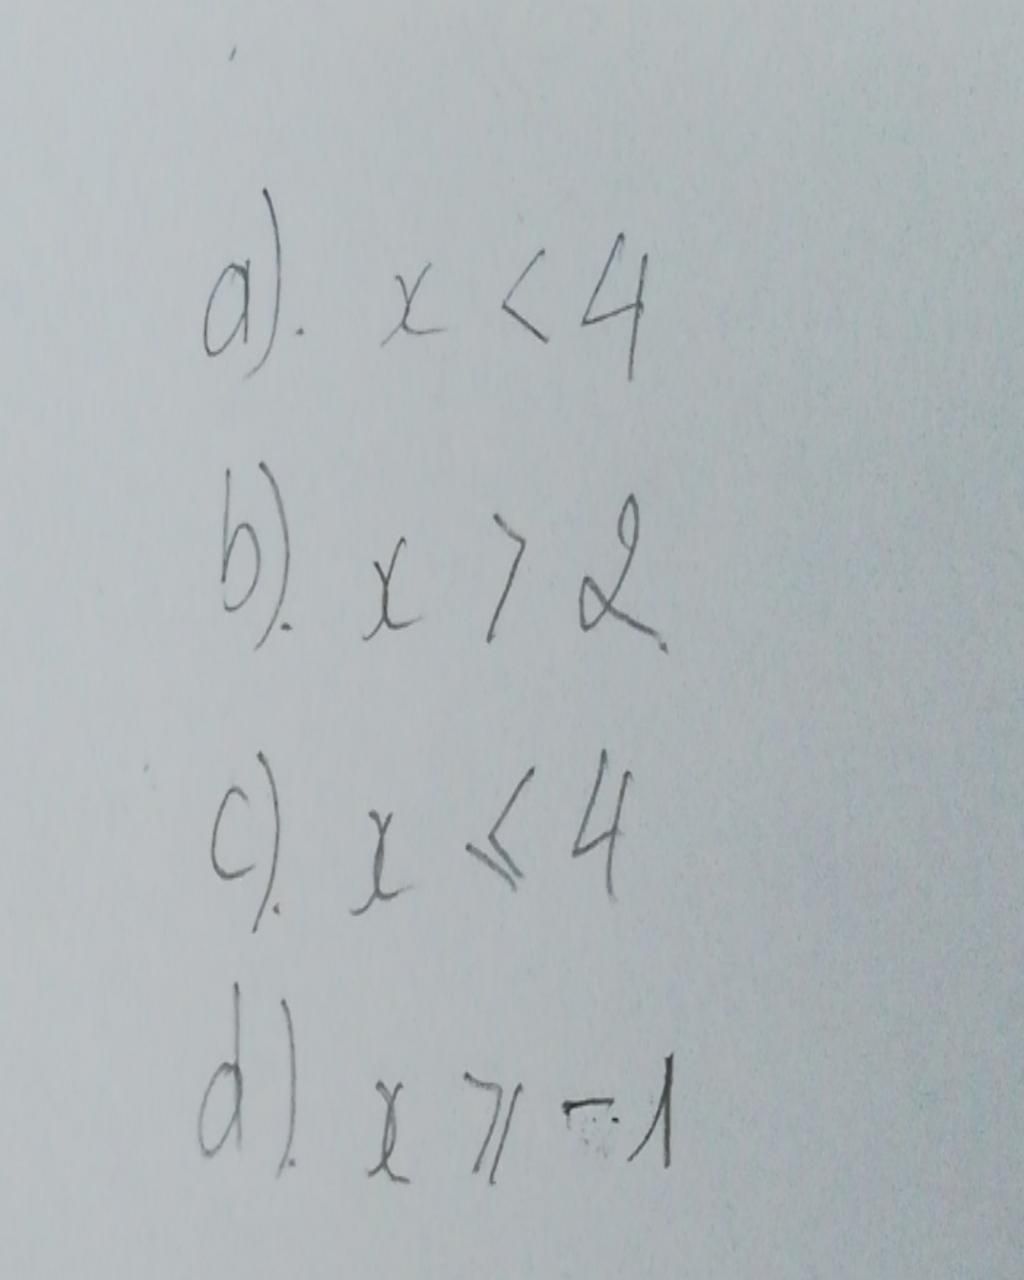 a). x < 4
b). x > 2
c). x ⩽ 4
d). x ⩾ -1